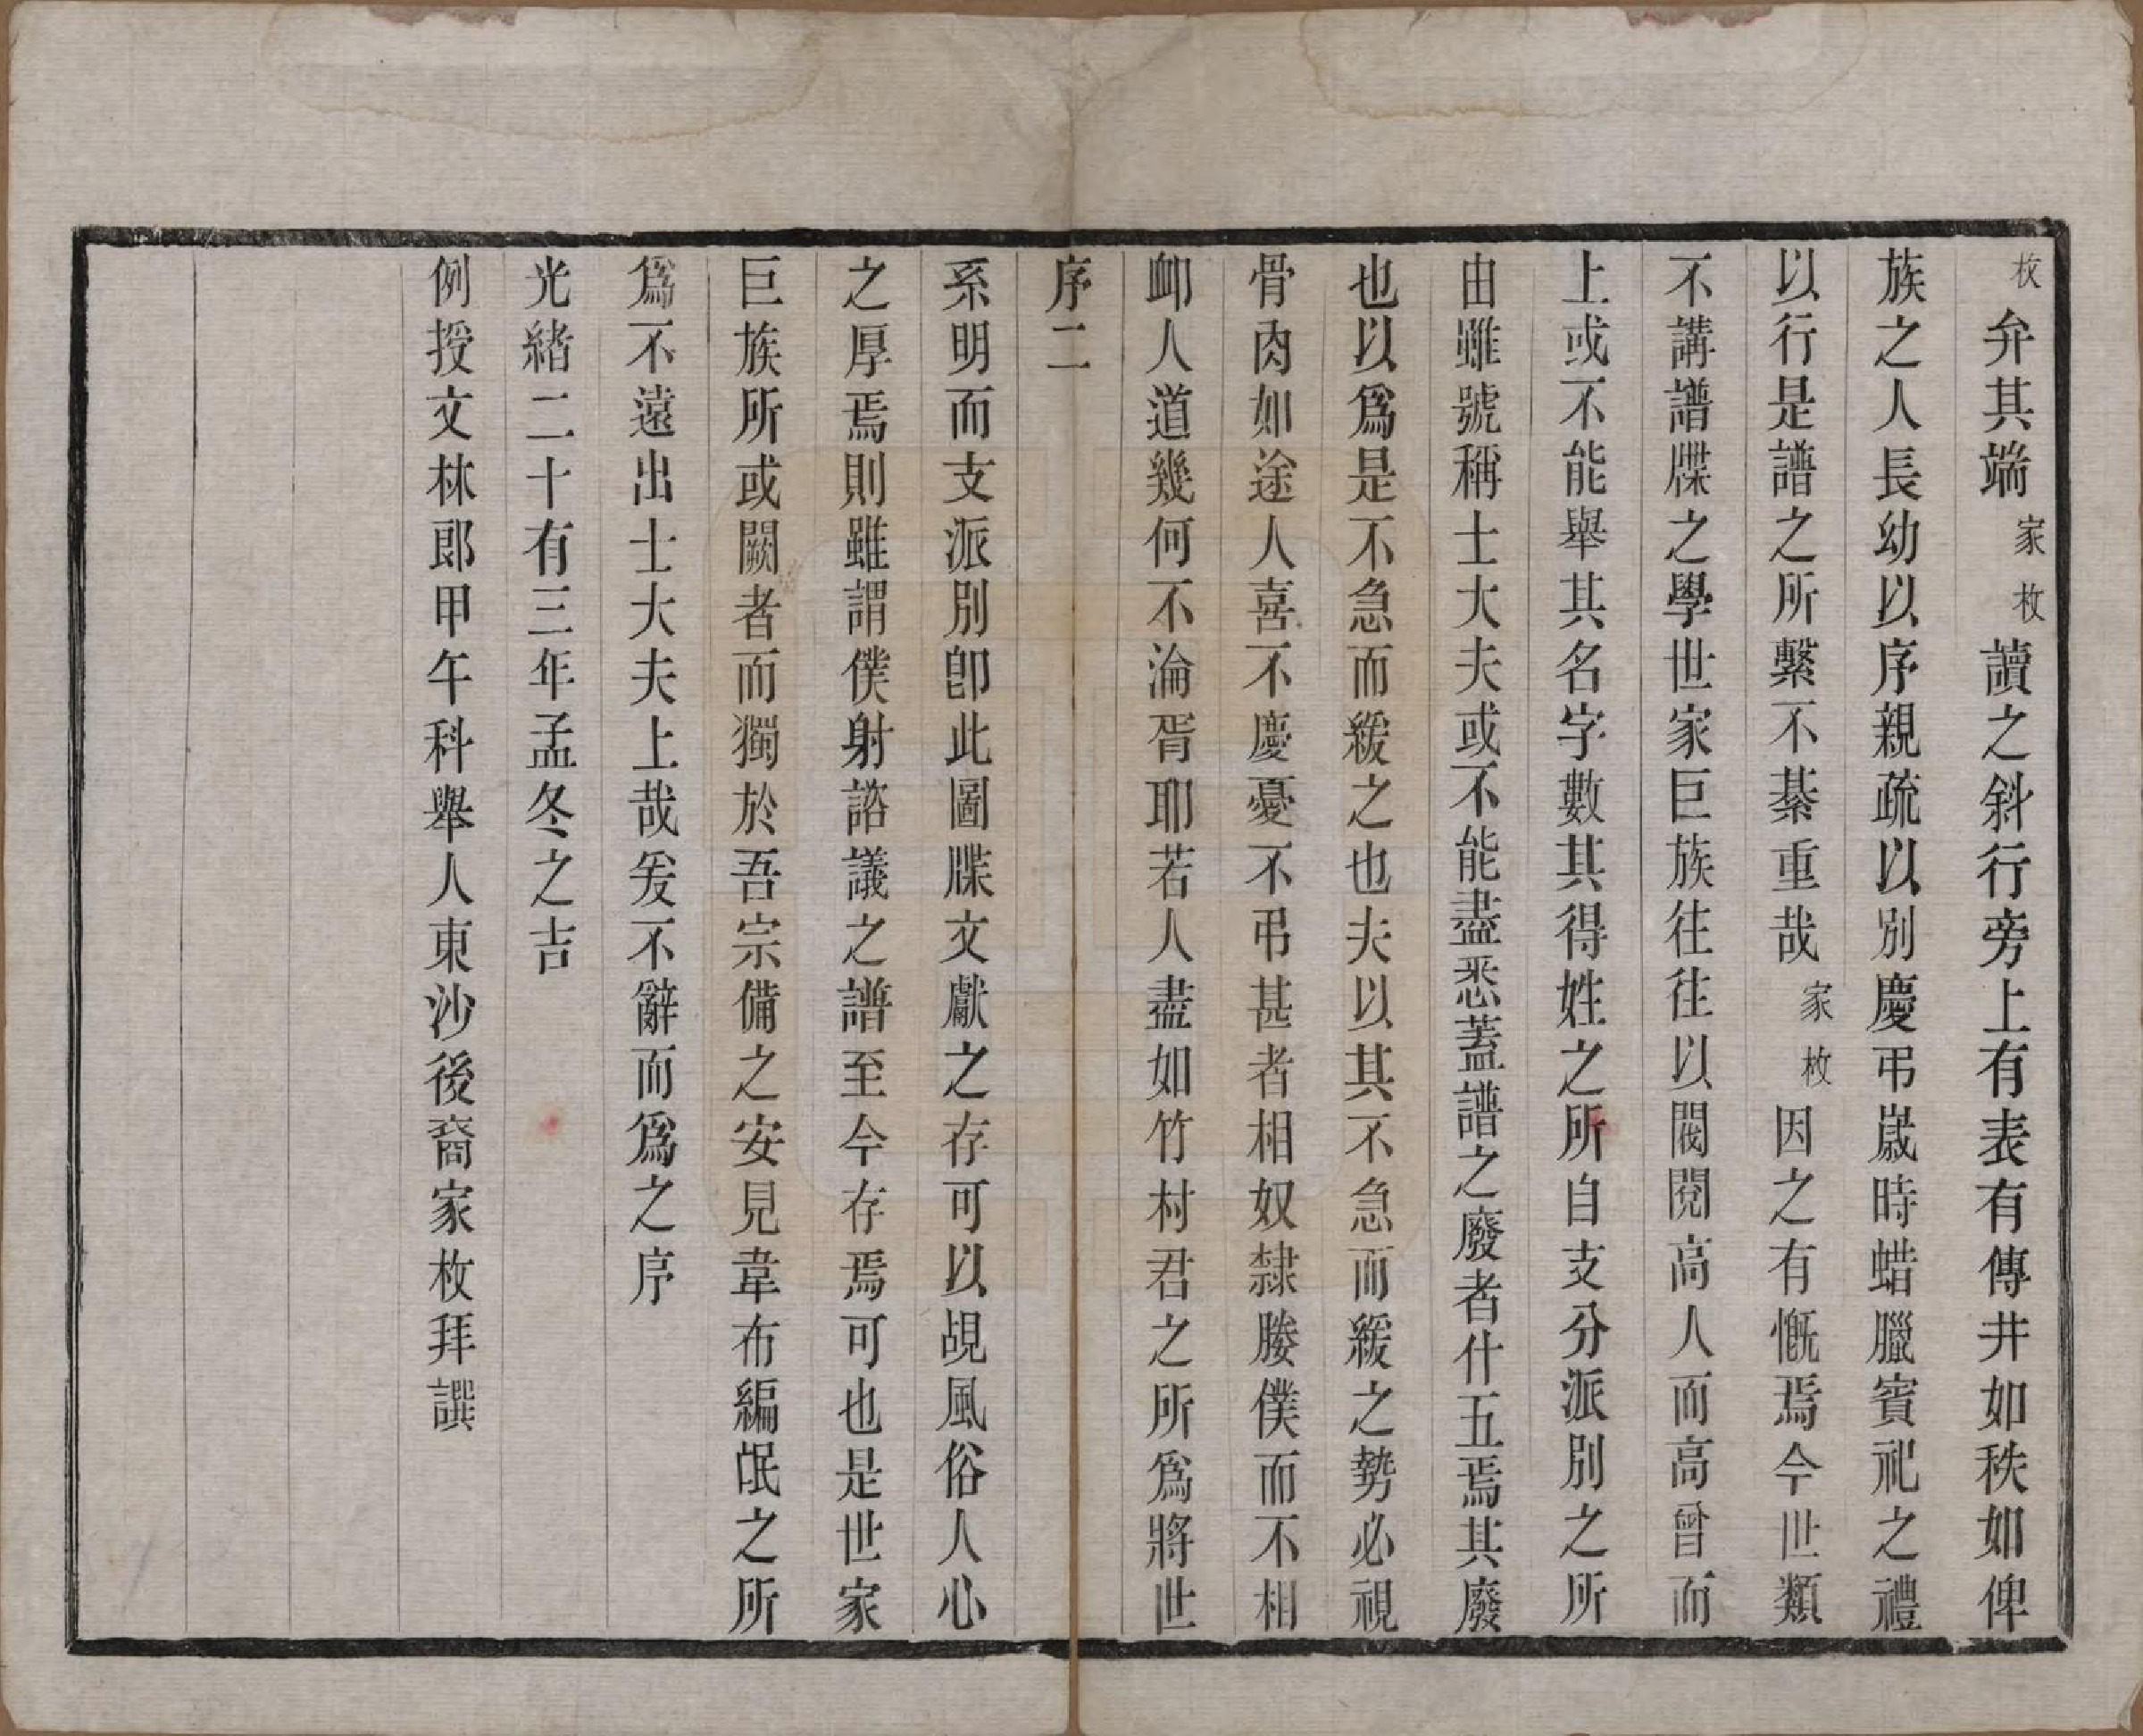 枚弁其端家枚讀之斜行旁上有表有傳井如秩如俾
族之人長幼以序親疏以別慶弔嵗時蜡臘賓祀之禮
以行是譜之所繫不綦重哉家枚因之有慨焉今世類
不講譜牒之學世家巨族往往以閥閱高人而高曾而
上或不能舉其名字數其得姓之所自支分派別之所
由雖號稱士大夫或不能盡悉蓋譜之廢者什五焉其廢
也以爲是不急而緩之也夫以其不急而緩之勢必視
骨肉如途人喜不慶憂不弔甚者相奴隸媵僕而不相
卹人道幾何不淪胥耶若人盡如竹村君之所爲將世
序二
系明而支派別卽此圖牒文獻之存可以覘風俗人心
之厚焉則雖謂僕射諮議之譜至今存焉可也是世家
巨族所或闕者而獨於吾宗備之安見韋布編氓之所
爲不遠出士大夫上哉爰不辭而爲之序
光緒二十有三年孟冬之吉
例授文林郎甲午科舉人東沙後裔家枚拜譔